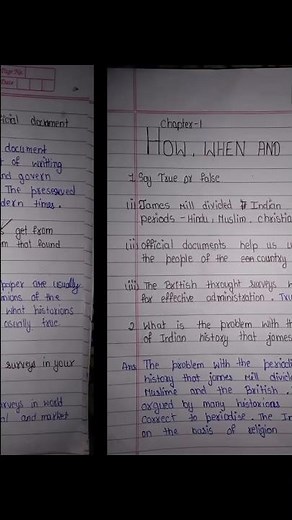 document
document
of writing
nd govern
The preserved
dern times.
get from
m that found
paper are usually
nions of the
what historians
usually true
surveys in your
urveys in world
al and market
Chapter-1
HOW, WHEN AND
1. Say True or false
(i) James Mill divided Indian
periods - Hindu, Muslim, christia
(ii) official documents help us u
the people of the country
(iii) The British throught surveys w
for effective administration. Tru
2. What is the problem with th
of Indian history that james
Ans The problem with the periodi
history that james Mill divid
Muslims and the British.
argued by many historians
correct to periodise. The In
on the basis of religion